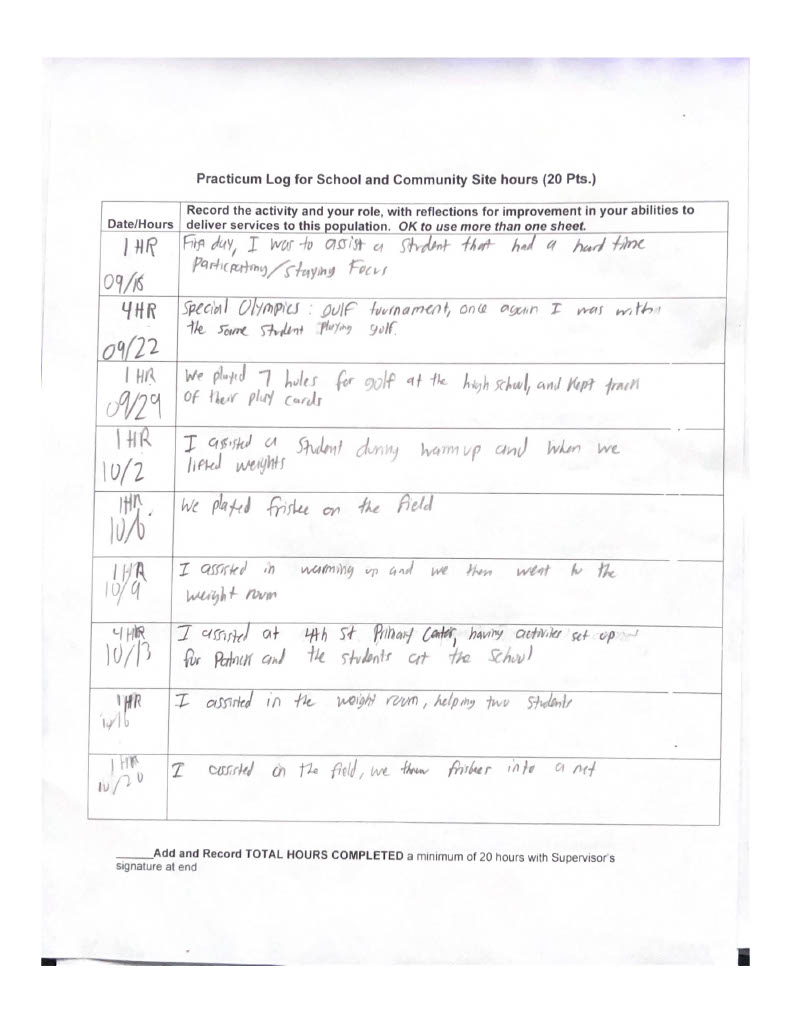 Practicum Log for School and Community Site hours (20 Pts.)
Date/Hours
Record the activity and your role, with reflections for improvement in your abilities to
deliver services to this population. OK to use more than one sheet.
1 HR
09/18
First day, I was to assist a student that had a hard time
Participating/staying Focus
4HR
09/22
Special Olympics: golf tournament, once again I was with
the same student playing golf.
1 HR
09/29
We played 7 holes for golf at the high school, and kept track
of their play cards
1HR
10/2
I assisted a student during warm up and when we
lifted weights
1HR.
10/6
We played frisbee on the field
1HR
10/9
I assisted in warming up and we then went to the
weight room
4HR
10/13
I assisted at 4th St Primary Center, having activities set up
for Partners and the students at the school
1HR
10/16
I assisted in the weight room, helping two students
1HR
10/20
I assisted on the field, we threw frisbees into a net
_____Add and Record TOTAL HOURS COMPLETED a minimum of 20 hours with Supervisor's
signature at end